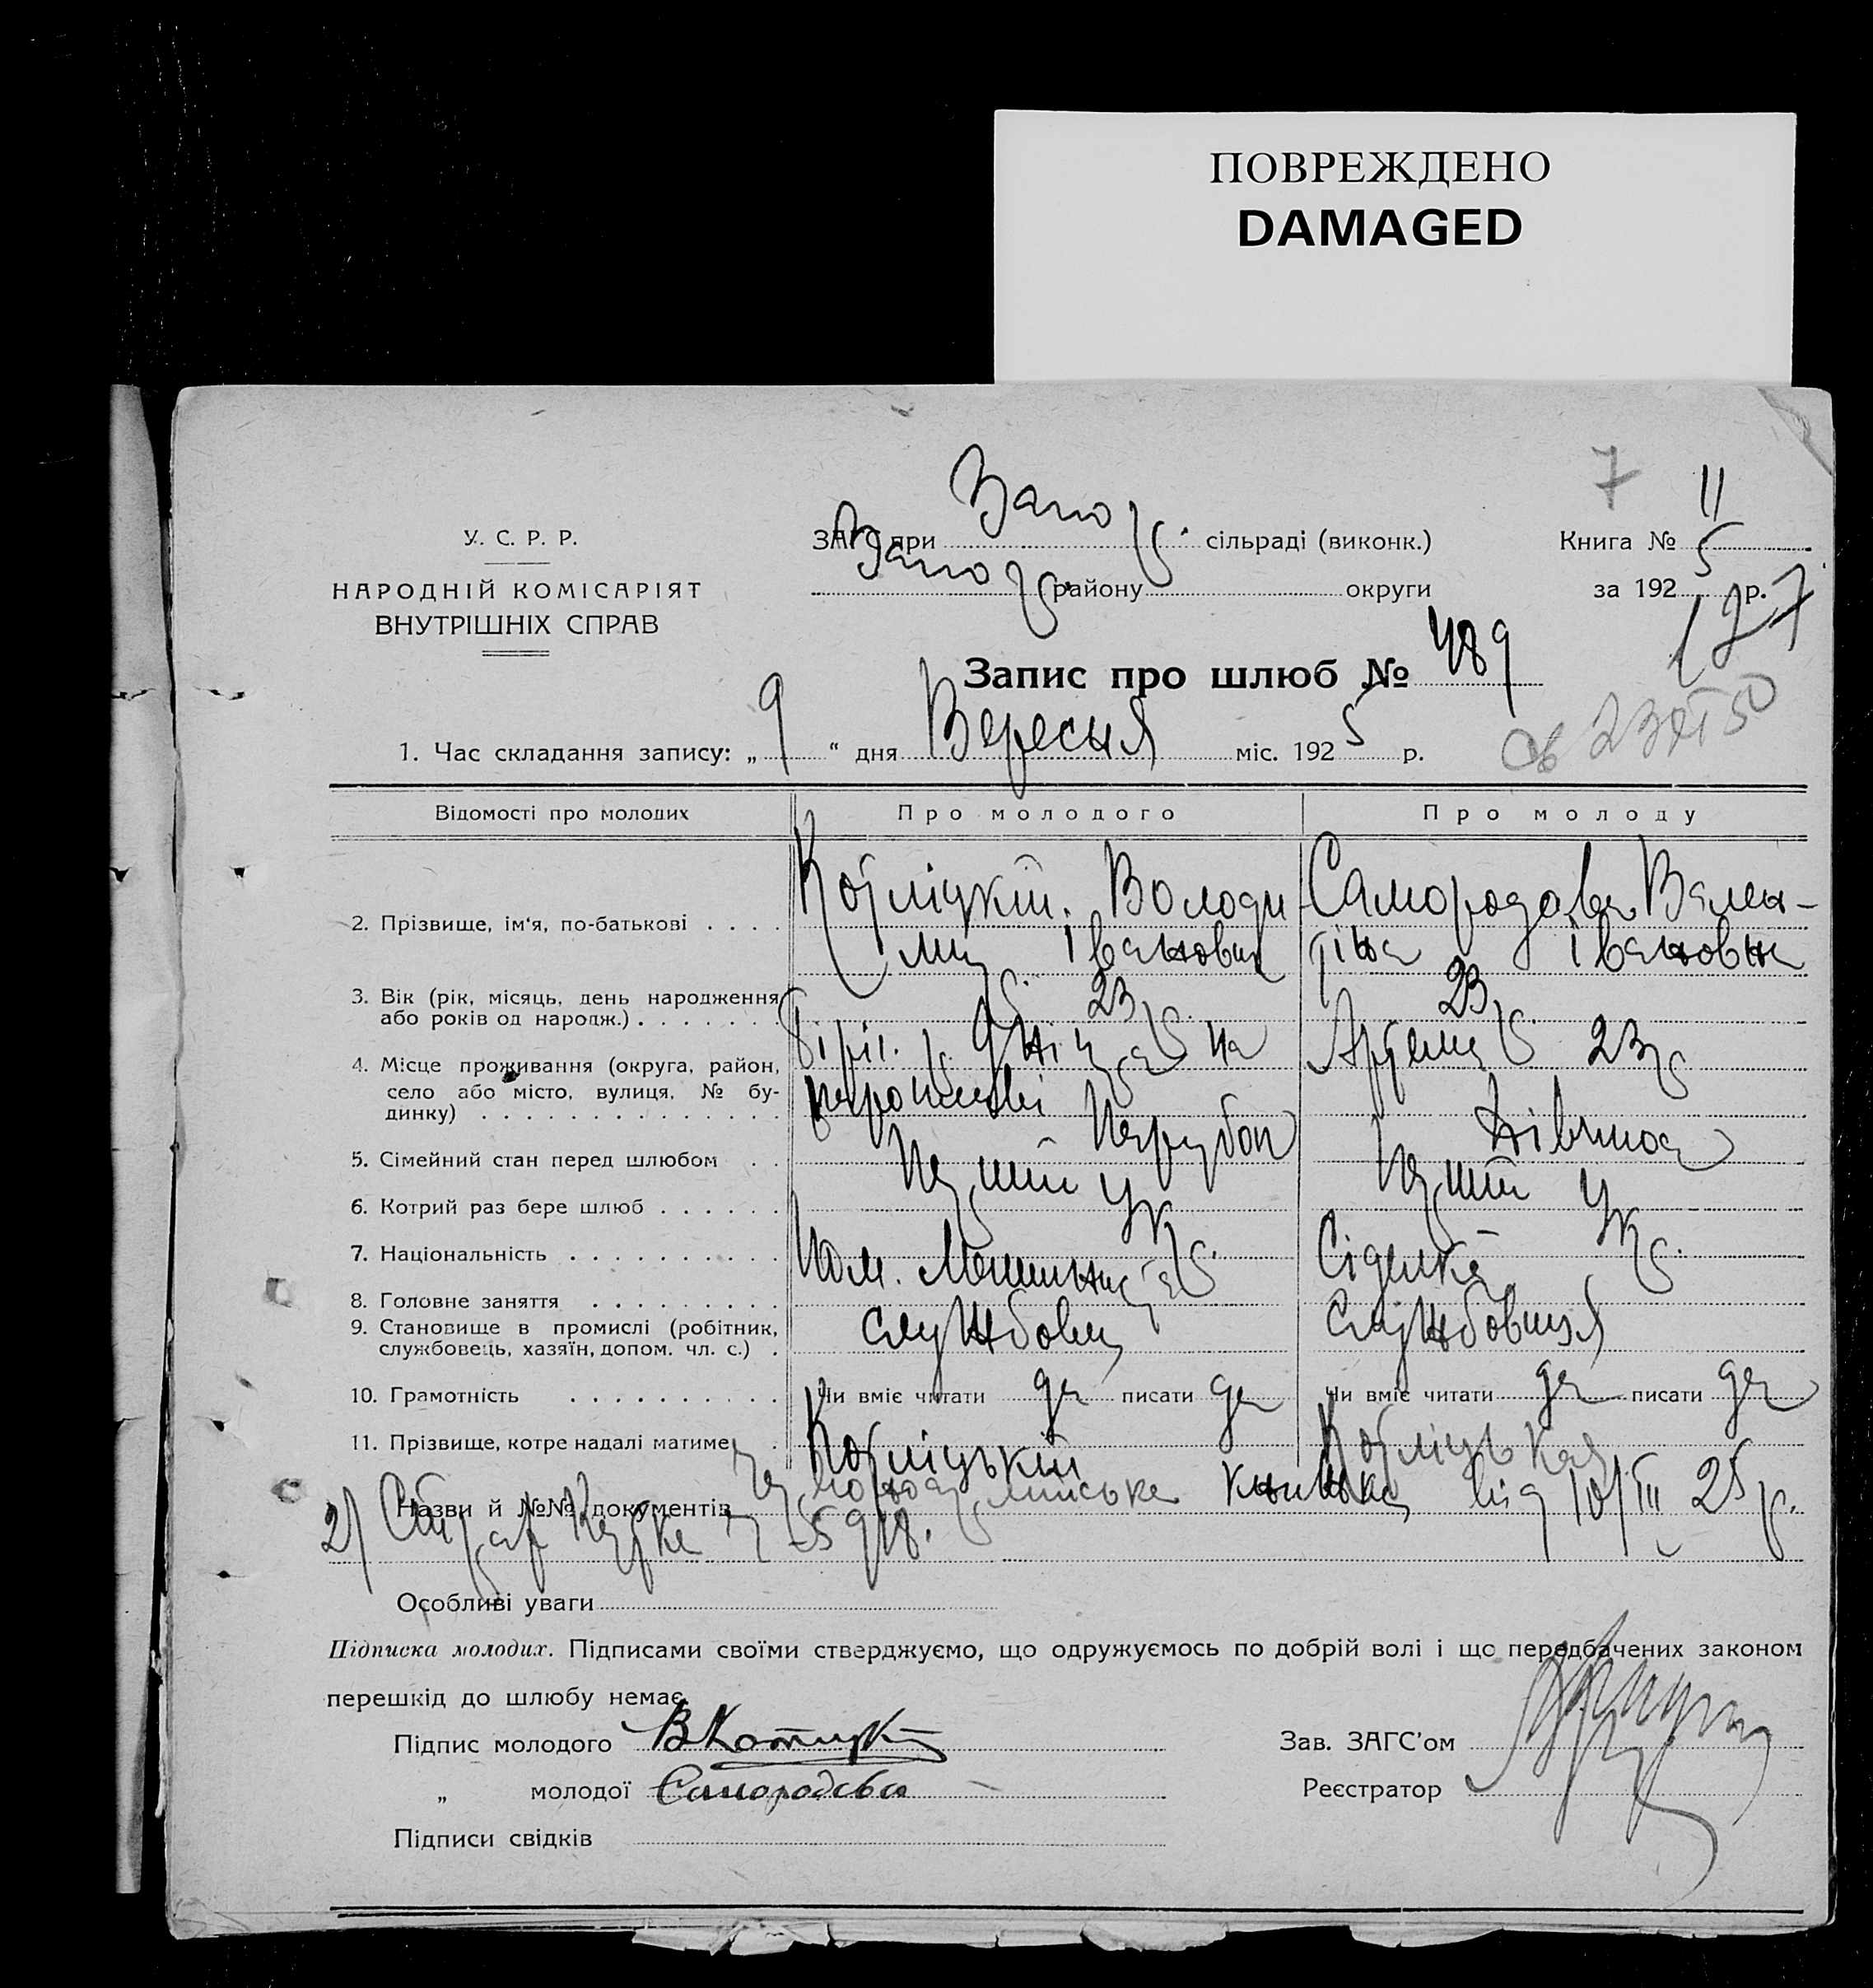 ПОВРЕЖДЕНО
DAMAGED
7
11
У. С. Р. Р.
НАРОДНІЙ КОМІСАРІЯТ
ВНУТРІШНІХ СПРАВ
ЗАГС при Запор. сільраді (виконк.)
Запор. району округи
Книга №
за 1925 р.
127
Запис про шлюб № 489
1. Час складання запису: „ 9 “ дня Вересня міс. 1925 р.
Відомості про молодих Про молодого Про молоду
2. Прізвище, ім‘я, по-батькові . . . . Котліцкій. Володи Самородова Вален-
мир Іванович тіна Івановна
3. Вік (рік, місяць, день народження 23 р. 23 р.
або років од народж.) . . . . . . .
4. Місце проживання (округа, район, Артема 23
село або місто, вулиця, № бу-
динку) . . . . . . . . . . . . . . .
5. Сімейний стан перед шлюбом . . Парубок Дівчина
6. Котрий раз бере шлюб . . . . . . Перший Перший
7. Національність . . . . . . . . . . Укр. Укр.
8. Головне заняття . . . . . . . . Пом. Сіделка
9. Становище в промислі (робітник,
службовець, хазяїн, допом. чл. с.) . службовец службовиця
10. Грамотність . . . . . . . . . . Чи вміє читати да писати да Чи вміє читати да писати да
11. Прізвище, котре надалі матиме . Котліцькій Котліцькая
Назви й №№ документів книжка від 10/III 25 р.
2)
Особливі уваги
Підписка молодих. Підписами своїми стверджуємо, що одружуємось по добрій волі і що передбачених законом
перешкід до шлюбу немає.
Підпис молодого
„ молодої Самородова
Підписи свідків
Зав. ЗАГС’ом
Реєстратор